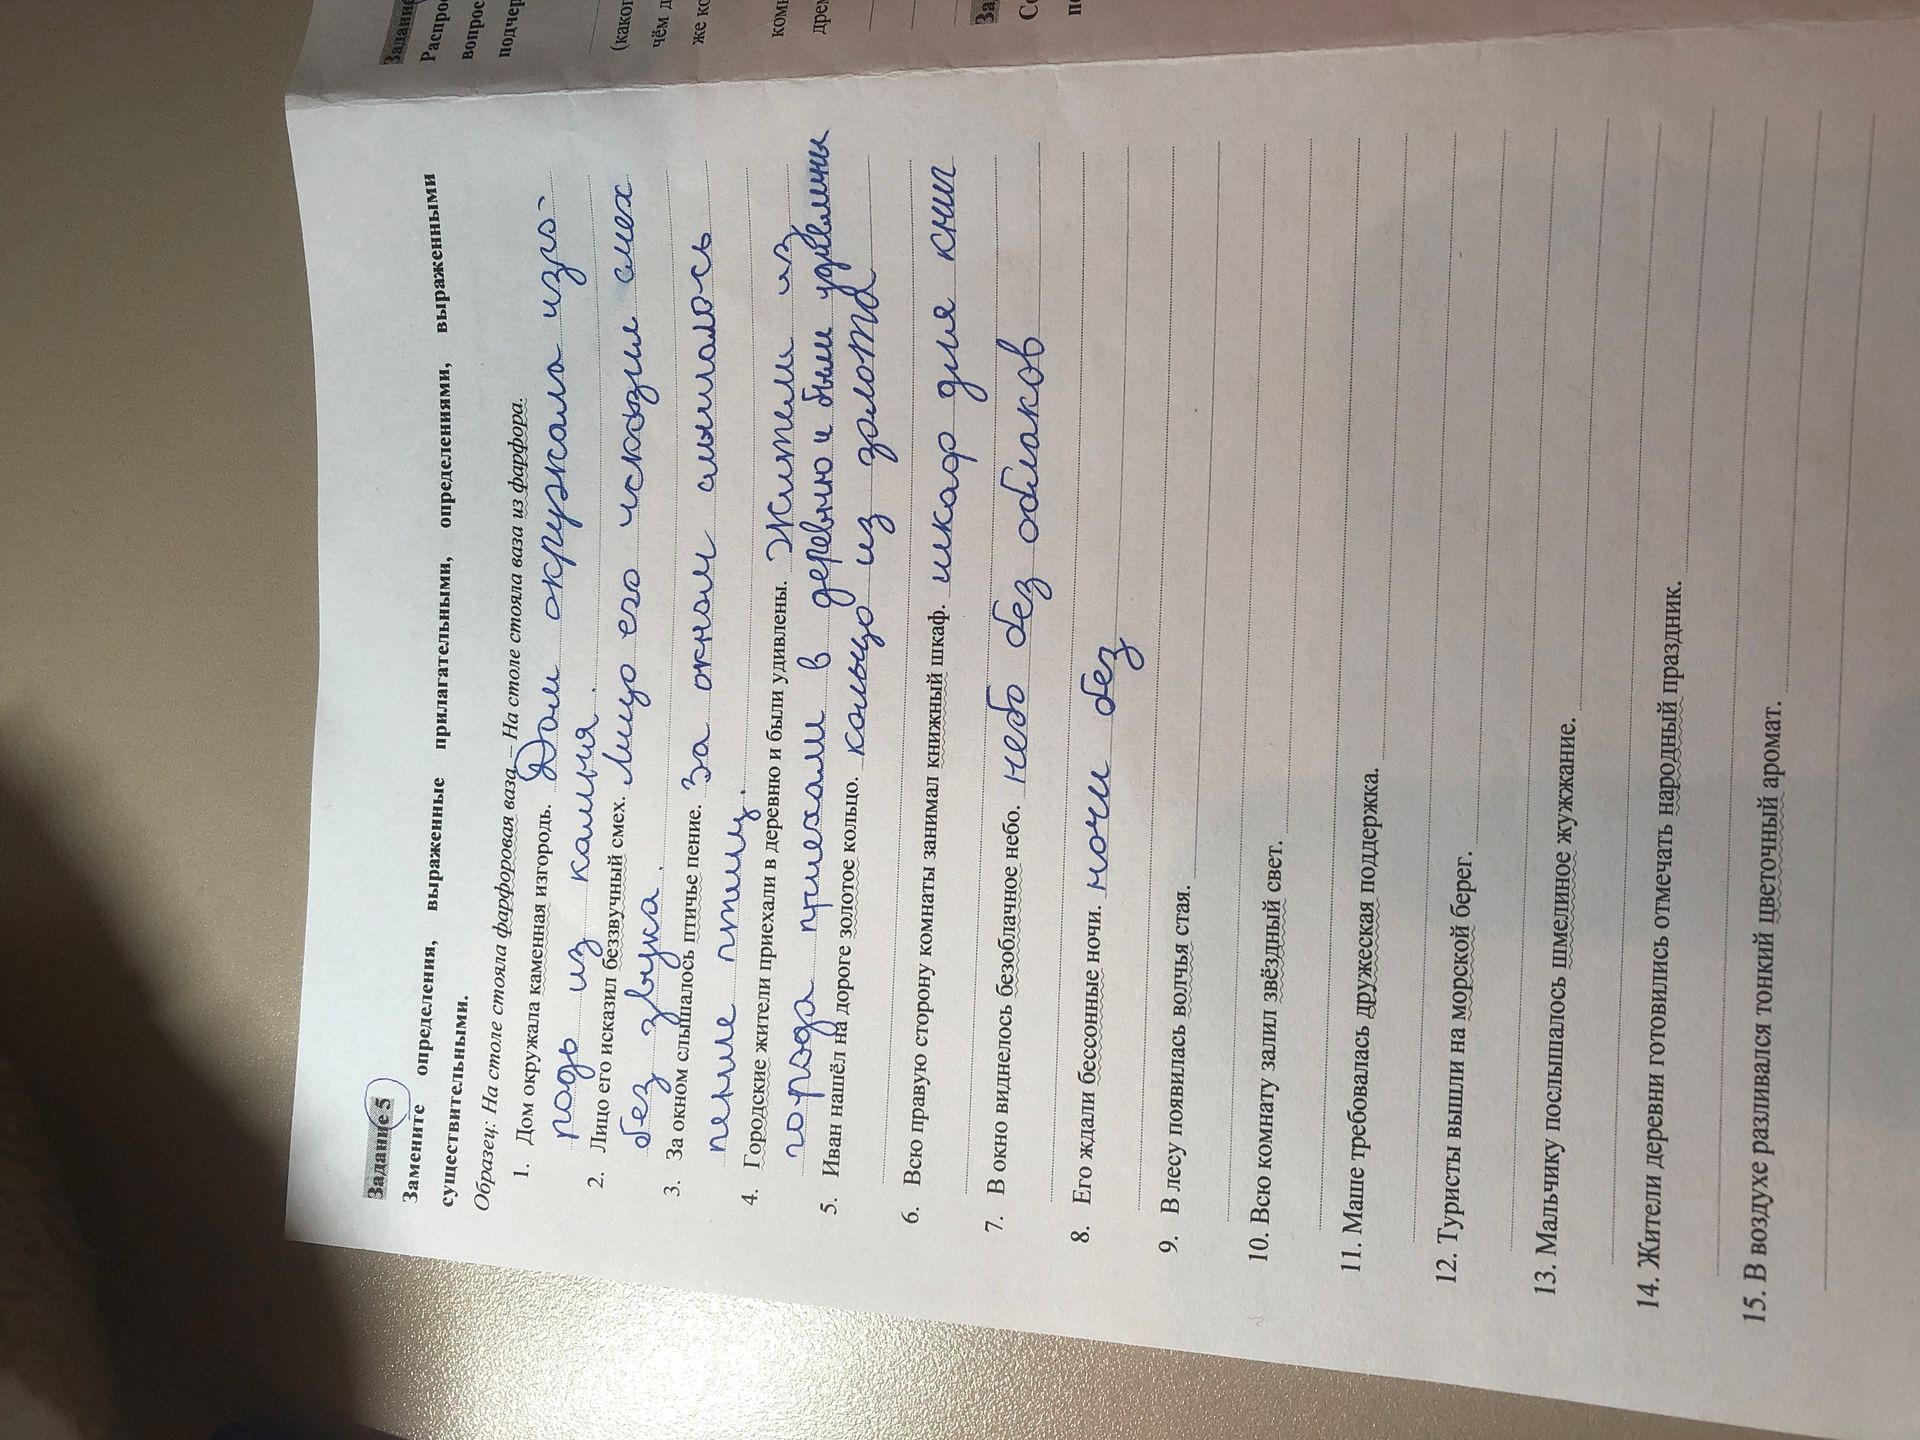 Задание 5
Замените определения, выраженные прилагательными, определениями, выраженными
существительными.
Образец: На столе стояла фарфоровая ваза – На столе стояла ваза из фарфора.
1. Дом окружала каменная изгородь. Дом окружала изго-
родь из камня.
2. Лицо его исказил беззвучный смех. Лицо его исказил смех
без звука.
3. За окном слышалось птичье пение. За окном слышалось
пение птиц.
4. Городские жители приехали в деревню и были удивлены. Жители из
города приехали в деревню и были удивлины
5. Иван нашёл на дороге золотое кольцо. кольцо из золота
6. Всю правую сторону комнаты занимал книжный шкаф. шкаф для книг
7. В окно виднелось безоблачное небо. небо без облаков
8. Его ждали бессонные ночи. ночи без
9. В лесу появилась волчья стая.
10. Всю комнату залил звёздный свет.
11. Маше требовалась дружеская поддержка.
12. Туристы вышли на морской берег.
13. Мальчику послышалось шмелиное жужжание.
14. Жители деревни готовились отмечать народный праздник.
15. В воздухе разливался тонкий цветочный аромат.
Задание
Распро
вопрос
подчер
(каког
чём д
же ко
комн
дрем
За
Со
по